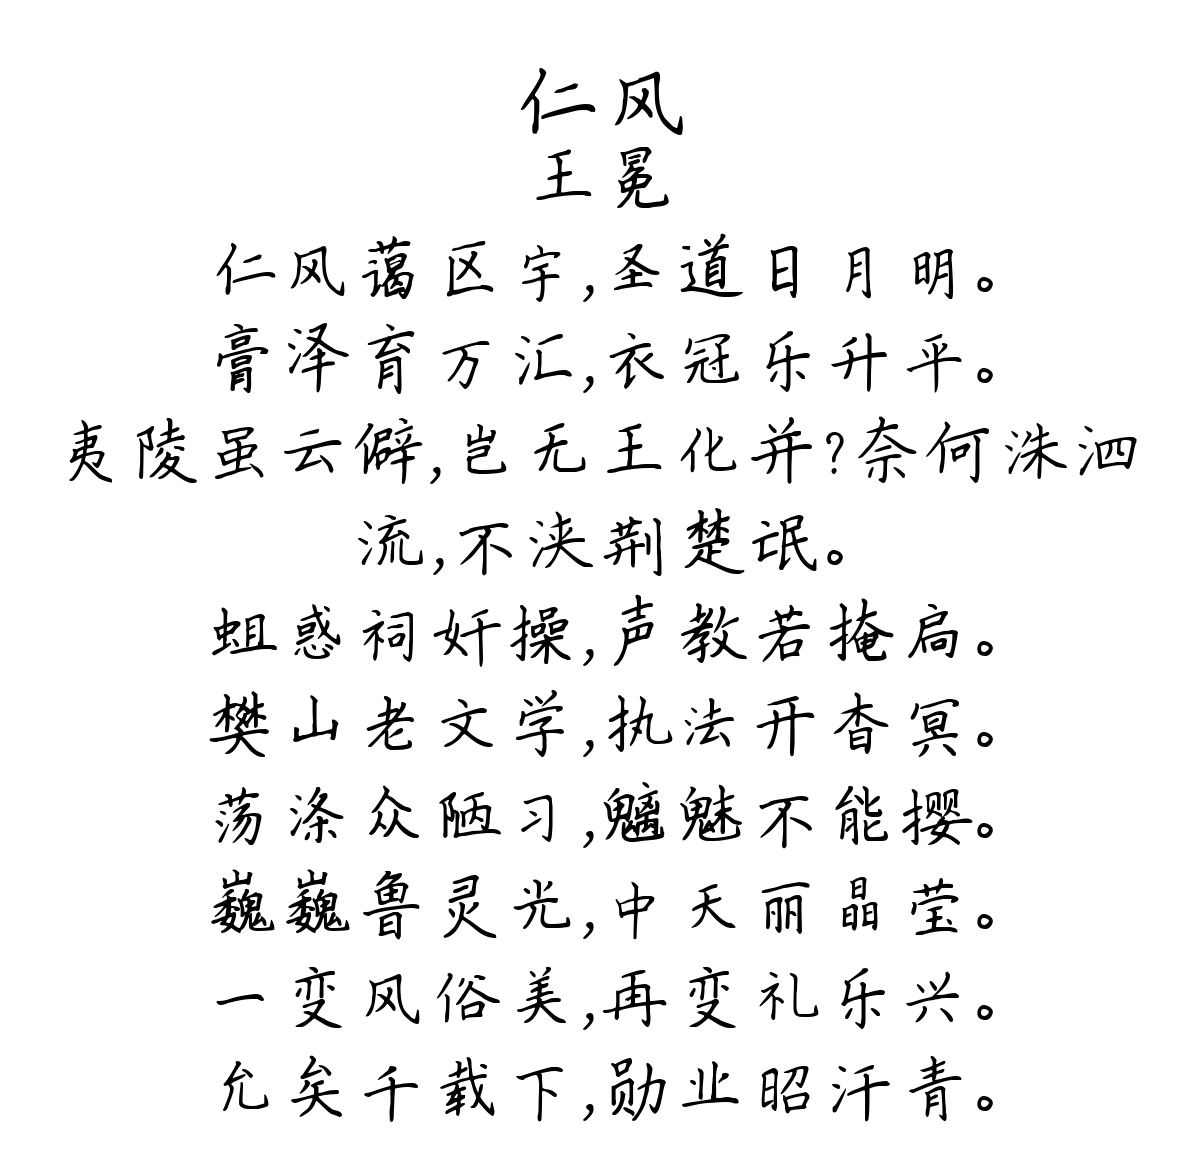 仁风
王冕
仁风蔼区宇,圣道日月明。
膏泽育万汇,衣冠乐升平。
夷陵虽云僻,岂无王化并?奈何洙泗
流,不浃荆楚氓。
蛆惑祠奸操,声教若掩扃。
樊山老文学,执法开杳冥。
荡涤众陋习,魑魅不能撄。
巍巍鲁灵光,中天丽晶莹。
一变风俗美,再变礼乐兴。
允矣千载下,勋业昭汗青。